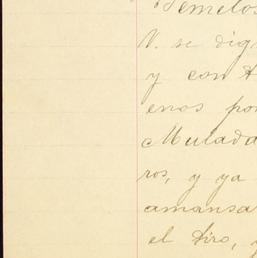 Temelos
V. se dig
y con t
enos por
Mulada
ros, y ya
amansa
el tiro, y